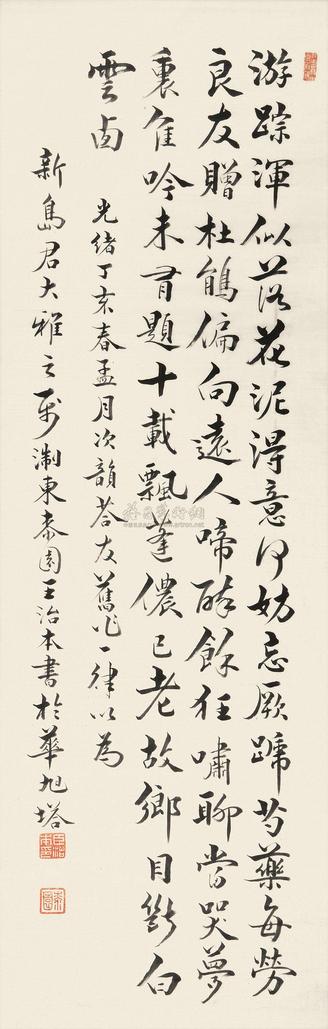 游踪渾似落花泥得意何妨忘厥蹄芍藥每勞
良友贈杜鵑偏向遠人啼醉餘狂嘯聊當哭夢
裏佳吟未有題十載飄蓬儂已老故鄉目斷白
雲卥 光緒丁亥春孟月次韻荅友舊作一律以為
新島君大雅之屬淛東桼園王治本書於華旭塔